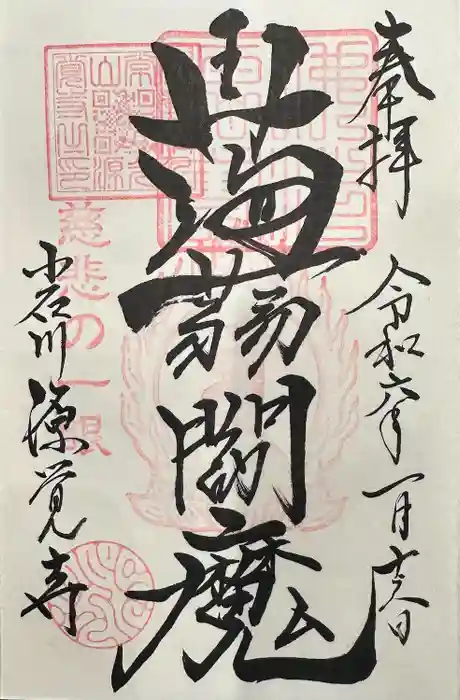 奉拝
令和六年一月十六日
蒟蒻閻魔
慈悲の一眼
小石川 源覚寺